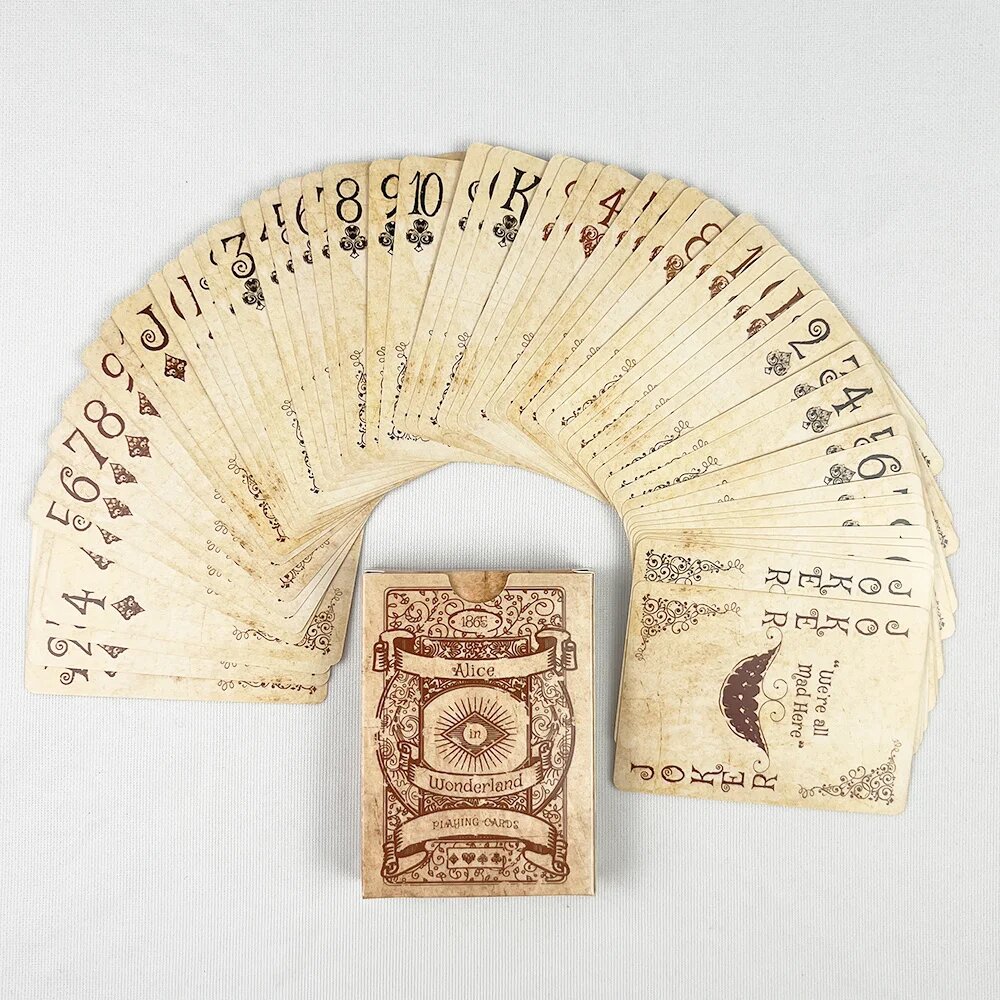 2
4
5
6
7
8
9
J
3
4
8
9
10
K
4
8
J
2
4
5
6
JOKER
JOKER
"We're all
Mad Here"
JOKER
1865
Alice
in
Wonderland
PLAYING CARDS